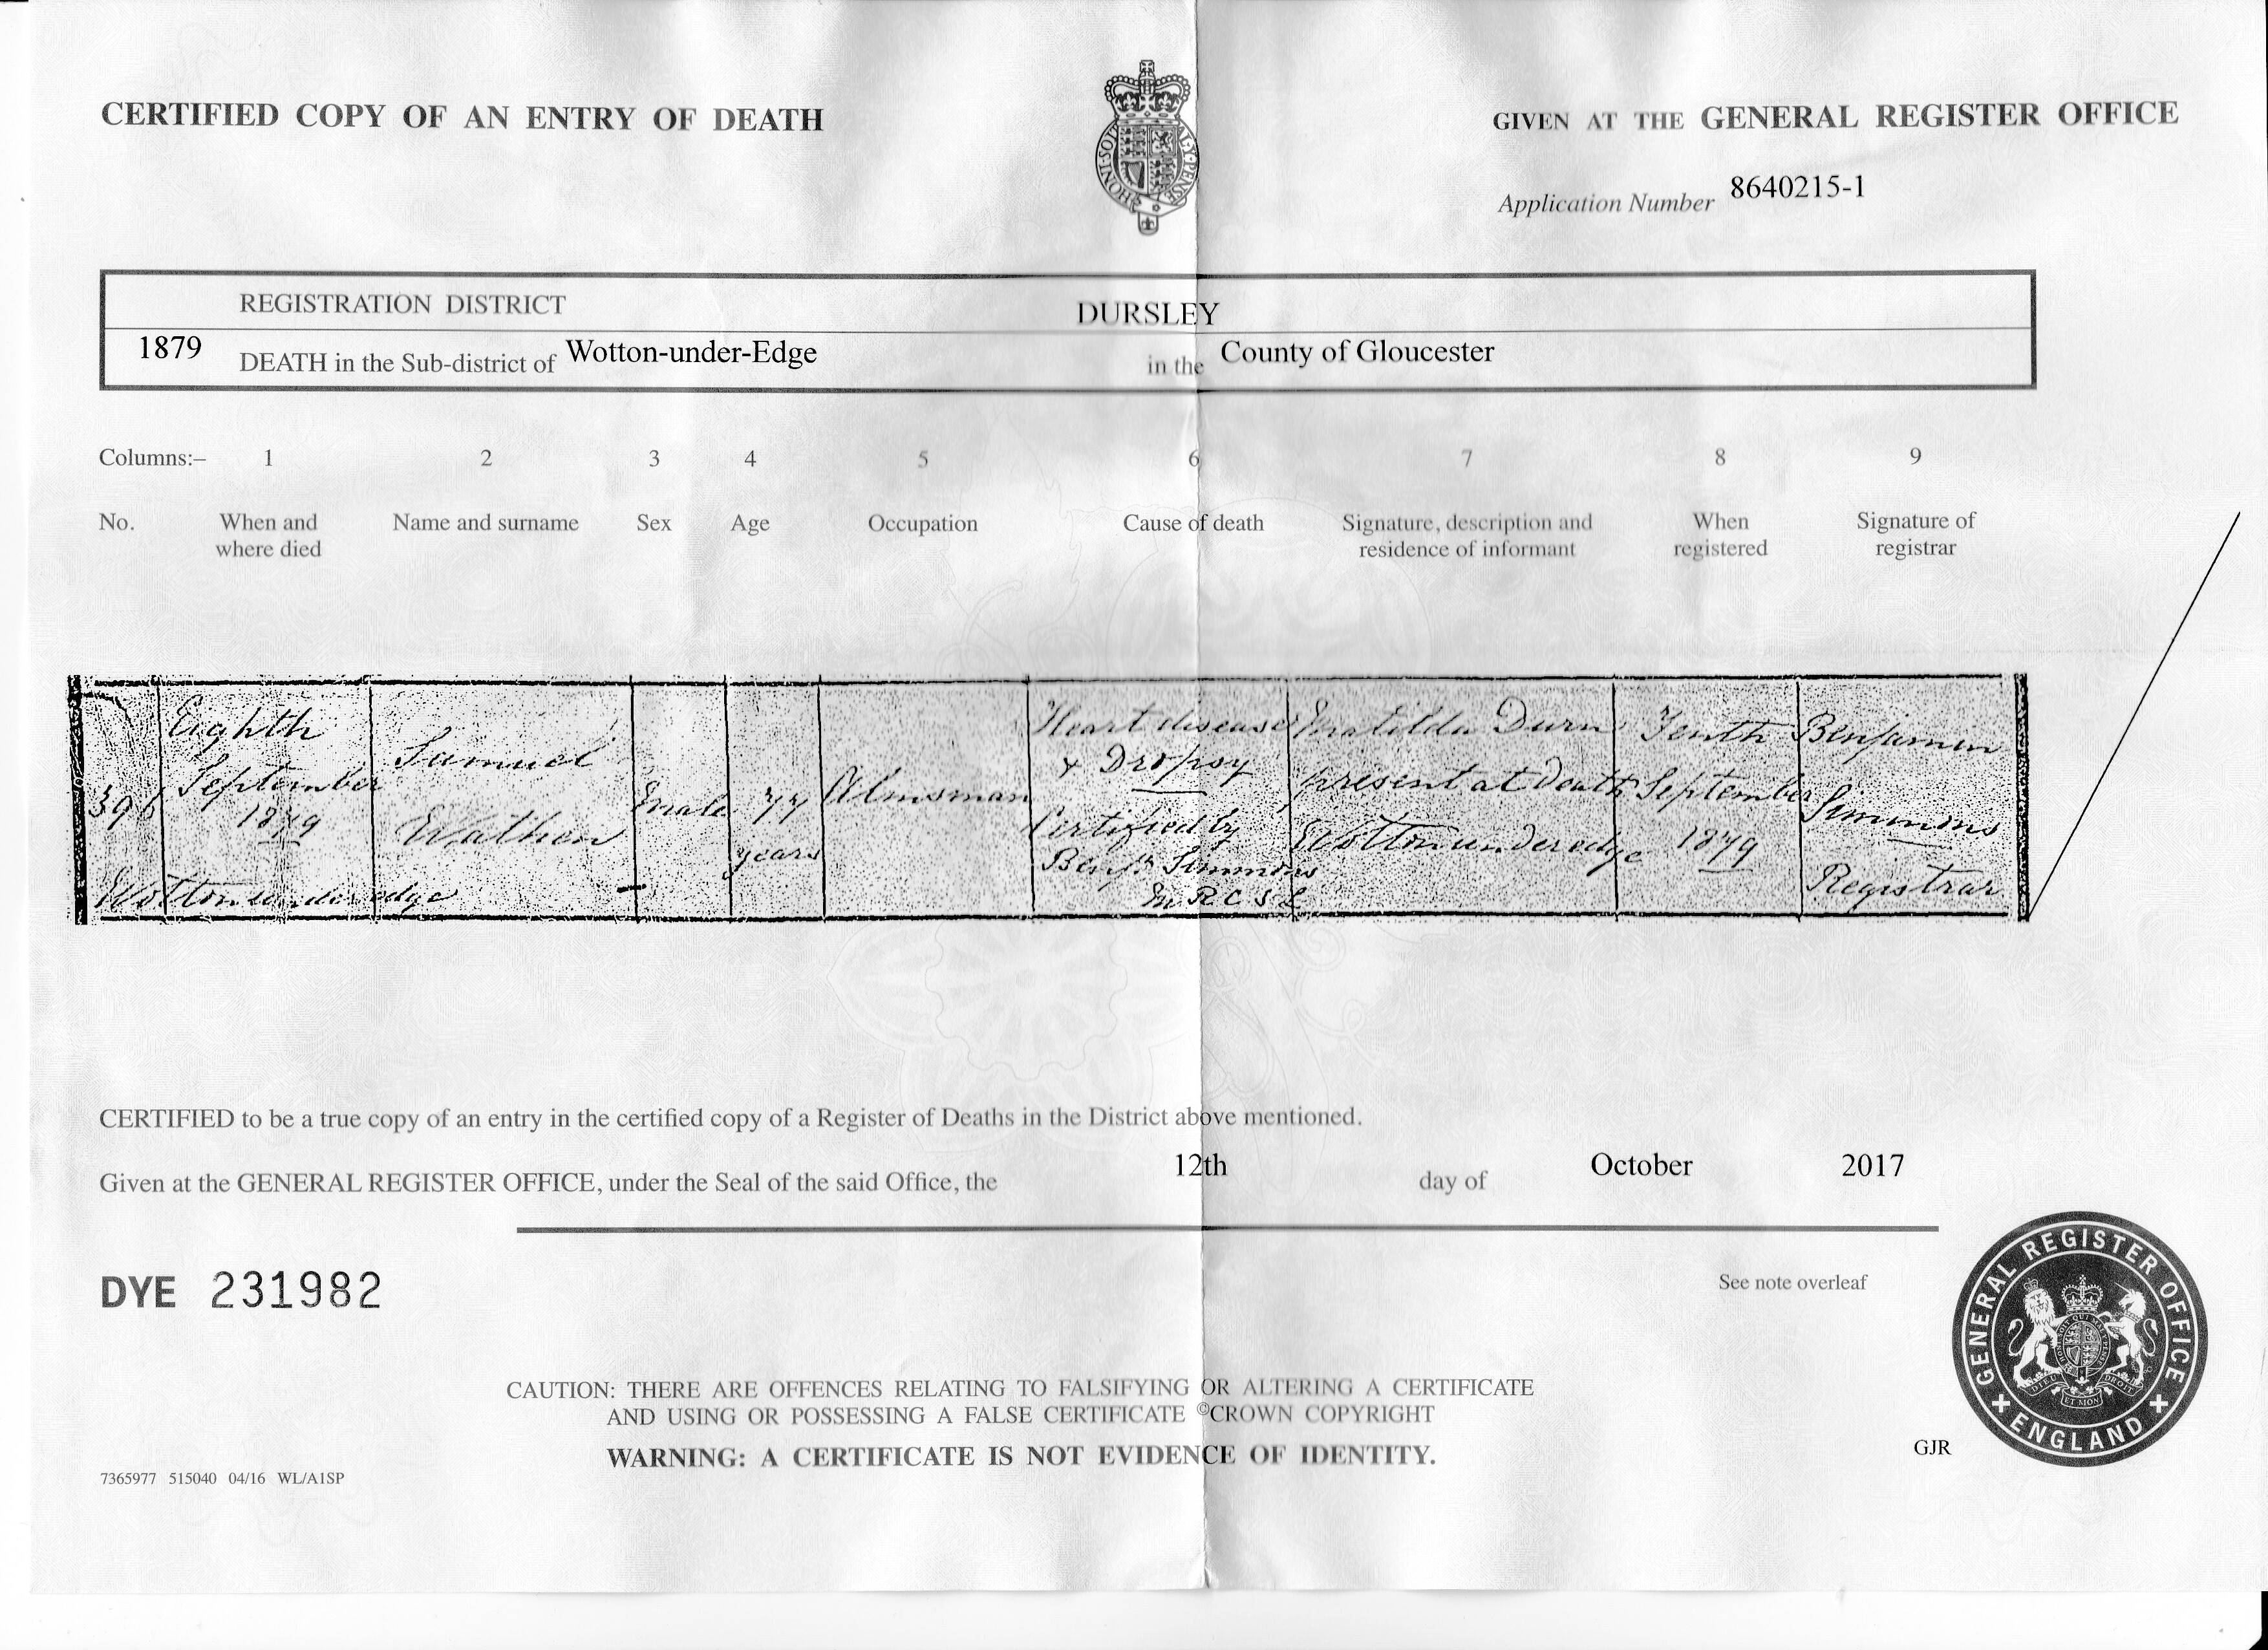 CERTIFIED COPY OF AN ENTRY OF DEATH
GIVEN AT THE GENERAL REGISTER OFFICE
Application Number 8640215-1
REGISTRATION DISTRICT DURSLEY
1879 DEATH in the Sub-district of Wotton-under-Edge in the County of Gloucester
Columns:– 1 2 3 4 5 6 7 8 9
No. When and where died Name and surname Sex Age Occupation Cause of death Signature, description and residence of informant When registered Signature of registrar
396
Eighth
September
1879
Wottonunderedge
Samuel
Wathen
Male
77
years
Almsman
Heart disease
& Dropsy
Certified by
Benjn. Simmons
M R C S L
Matilda Durn
present at death
Wottonunderedge
Tenth
September
1879
Benjamin
Simmons
Registrar
CERTIFIED to be a true copy of an entry in the certified copy of a Register of Deaths in the District above mentioned.
Given at the GENERAL REGISTER OFFICE, under the Seal of the said Office, the 12th day of October 2017
DYE 231982
See note overleaf
CAUTION: THERE ARE OFFENCES RELATING TO FALSIFYING OR ALTERING A CERTIFICATE
AND USING OR POSSESSING A FALSE CERTIFICATE ©CROWN COPYRIGHT
WARNING: A CERTIFICATE IS NOT EVIDENCE OF IDENTITY.
GENERAL REGISTER OFFICE
ENGLAND
DIEU ET MON DROIT
GJR
7365977 515040 04/16 WL/A1SP